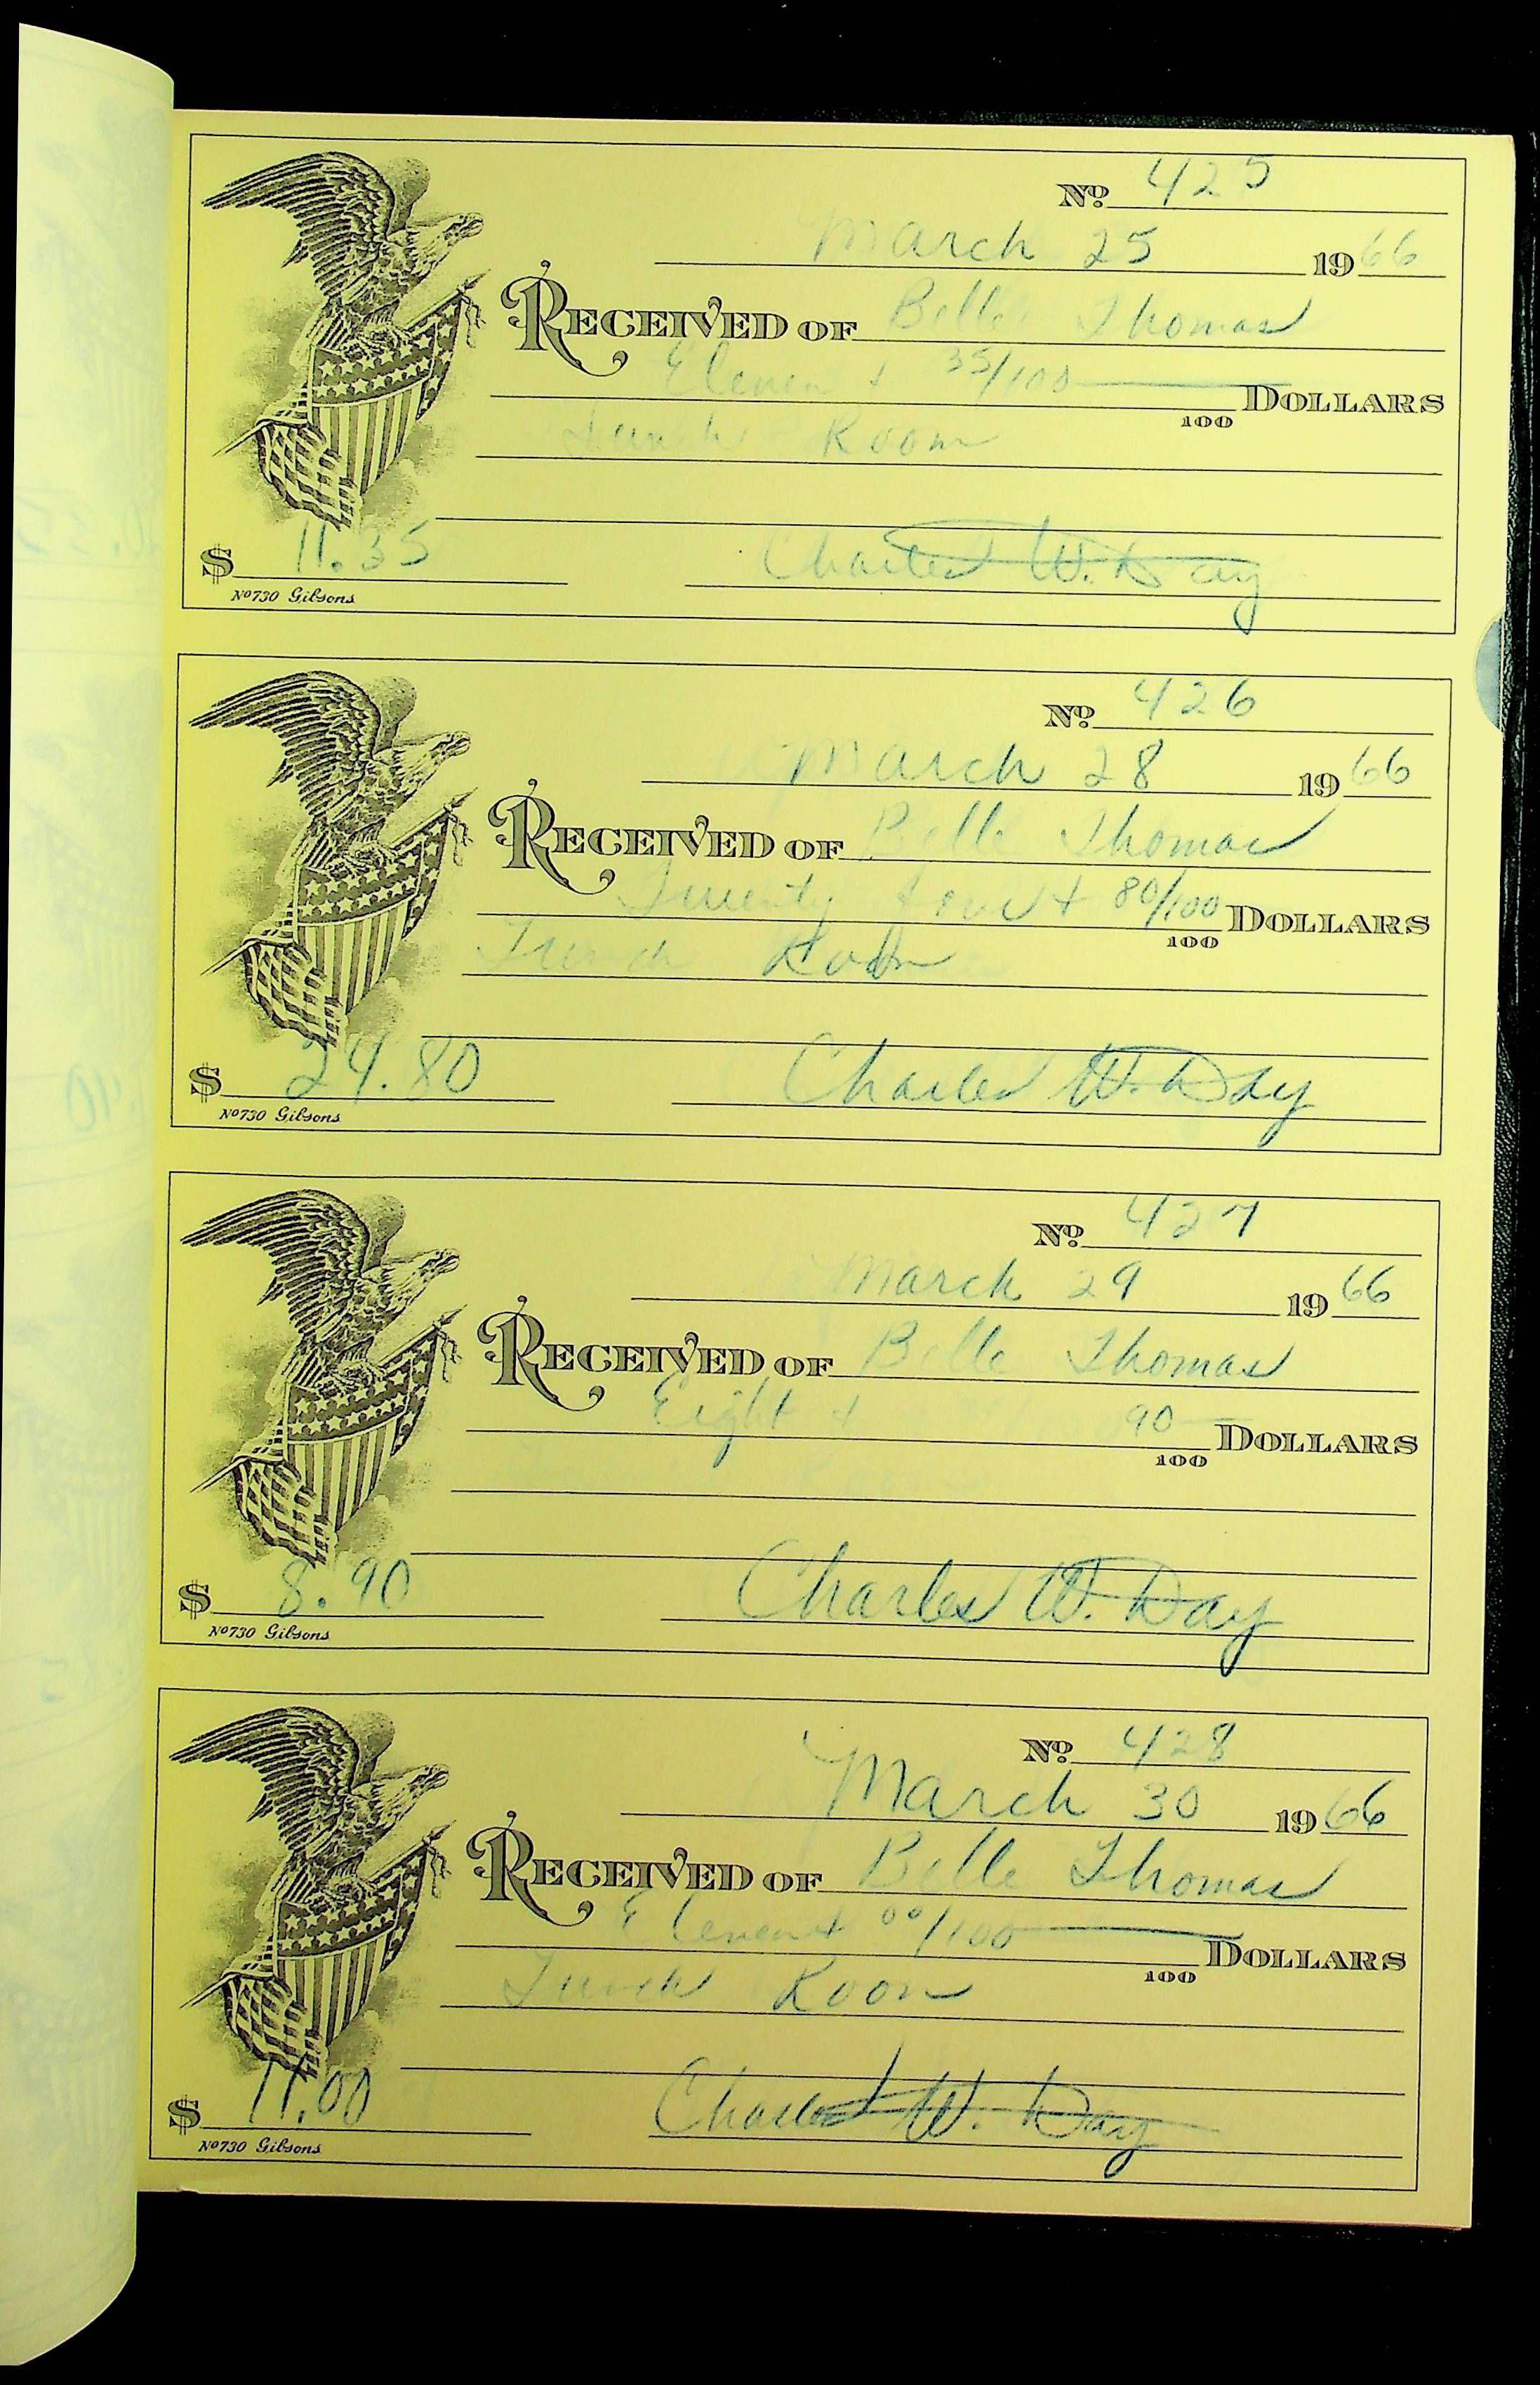 No. 425
March 25 1966
RECEIVED OF Belle Thomas
Eleven & 35/100 DOLLARS
100
Lunch Room
$ 11.35 Charles W. Day
No 730 Gibsons
No. 426
March 28 1966
RECEIVED OF Belle Thomas
Twenty four & 80/100 DOLLARS
100
Lunch Room
$ 24.80 Charles W. Day
No 730 Gibsons
No. 427
March 29 1966
RECEIVED OF Belle Thomas
Eight & 90 DOLLARS
100
$ 8.90 Charles W. Day
No 730 Gibsons
No. 428
March 30 1966
RECEIVED OF Belle Thomas
Eleven & 00/100 DOLLARS
100
Lunch Room
$ 11.00 Charles W. Day
No 730 Gibsons